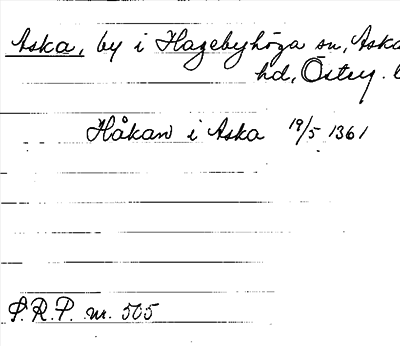 Aska, by i Hagebyhöga sn, Aska
hd, Österg. l
Håkan i Aska 19/5 1361
S.R.P. nr. 505